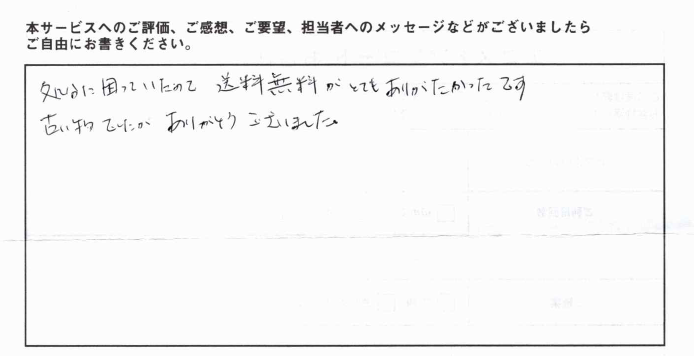 本サービスへのご評価、ご感想、ご要望、担当者へのメッセージなどがございましたら
ご自由にお書きください。
処分に困っていたので 送料無料がとてもありがたかったです
古い物でしたが ありがとうございました。